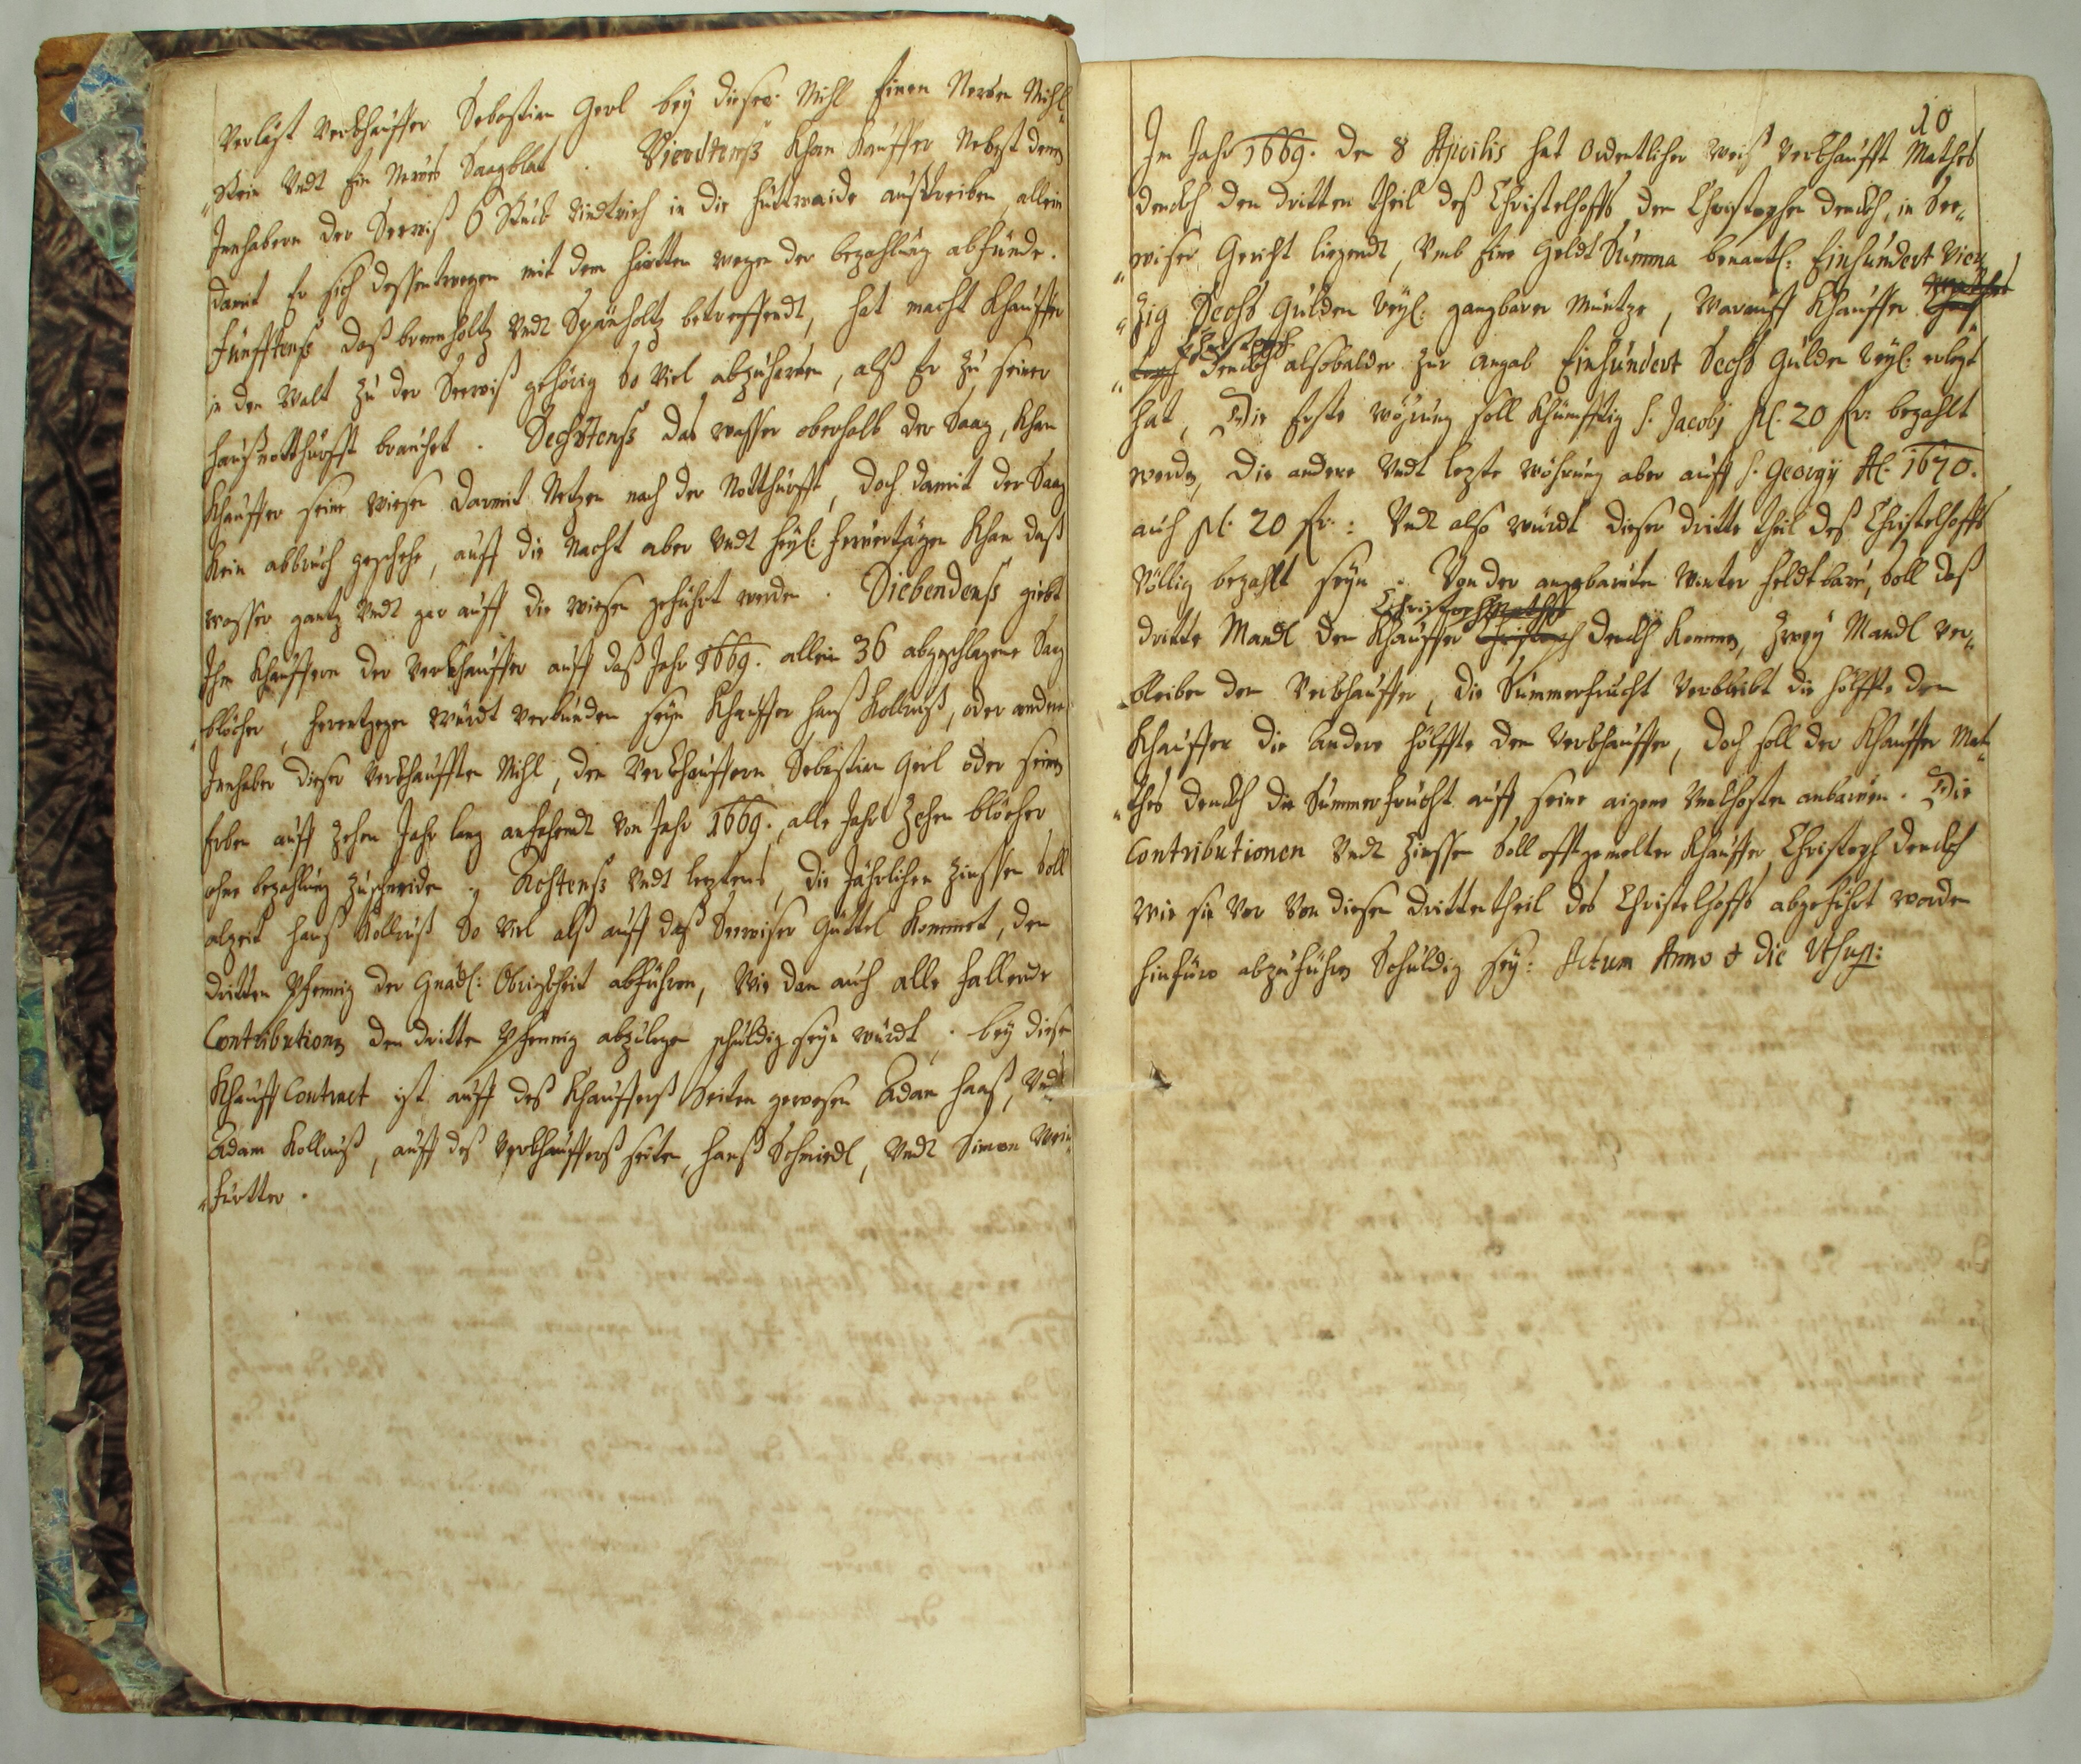 Verlast Verkhauffer Sebastian Gerl bey dieser Mihl Einen Neuen Mihl„
„Stein Vndt Ein Neües Saagblat. Vierdtenß Khan Kauffer Nebst denen
Innhabern der Seewiß 6 Stuck Rindtvieh in die Huttwaide außtreiben allein
damit Er sich dessentwegen mit dem hirtten wegen der bezahlung abfünde.
Fünfftenß daß brennholtz Vndt Spänholtz betreffendt, hat macht Khauffer
in den Walt zu der Seewiß gehörig So Viel abzuhawen, alß Er zu seiner
haußnotthurfft brauchet. Sechstenß das wasser oberhalb der Saag, Khan
Khauffer seine wiesen darmit Netzen nach der Notthurfft, doch damit der Saag
Kein abbruch geschehe, auff die Nacht aber Vndt heyl: Feüertägen Khan daß
wasser gantz Vndt gar auff die wiesen geführt werden. Siebendenß giebt
Ihm Khauffern der Verkhauffer auff daß Jahr 1669. allein 36 abgeschlagene Saag
„blöcher, herentgegen würdt verbunden seyn Khauffer hanß Kollruß, oder andere
Innhaber dieser Verkhaufften Mihl, den Verkhauffern Sebastian Gerl oder seinen
Erben auff zehen Jahr lang anfahendt Von Jahr 1669., alle Jahr Zehen blöcher
ohne bezahlung zuschneiden. Achtenß Vndt leztens, die Jährlichen Zinssen soll
alzeit hanß Kollruß So Viel alß auff daß Seewiser Güettel Kommet, den
dritten Pfennig der Gnädl: Obrigkheit abführen, Wie dan auch alle fallende
Contributionen den dritten Pfennig abzulegen schuldig seyn würdt. bey diesen
Khauff Contract ist auff deß Khauffers Seiten gewesen Adam Haaß, Vndt
Adam Kollruß, auff deß Verkhauffers seiten, hanß Schmidl, Vndt Simon Wein„
„furtter.
10
Im Jahr 1669. den 8 Aprilis hat Ordentlicher weiß Verkhaufft Mathes
denckh den dritten theil deß Christelhoffs, dem Christophen denckh, in See„
„wiser Gericht liegendt, Vmb Eine Geldt Summa benantl: Einhundert Vier„
„zig Sechs Gulden Reyl: gangbarer Müntze, Worauff Khauffer Mathes Chris„
„toph Christoph Denckh alsobalden zur Angab Einhundert Sechs Gulden Reyl: erlegt
hat, Die Erste währung soll Khünfftig S. Jacobj fl. 20 kr: bezahlt
werden, Die andere Vndt lezte währung aber auff S. Georgÿ Ao. 1670.
auch fl. 20 kr.: Vndt also würdt dieser dritte theil deß Christelhoffs
Völlig bezahlt seyn. Von der angebauten Winter Feldtbaü, soll daß
dritte Mandl dem Khauffer Christoph Christoph Mathes denckh Kommen, Zwey Mandl ver„
„bleiben dem Verkhauffer, Die Summerfrucht Verbleibt die hölffte dem
Khauffer die Andere hölffte dem Verkhauffer, doch soll der Khauffer Mat„
„thes denckh die Summerfrucht auff seine aigene Vnkhosten anbawen. Die
Contributionen Vndt Zinssen soll offtgemelter Khauffer Christoph Denckh
wie sie Vor Von diesen drittentheil des Christelhoffs abgeführt worden
hinfüro abzuführen Schuldig sey: Actum Anno & die Vt sup: